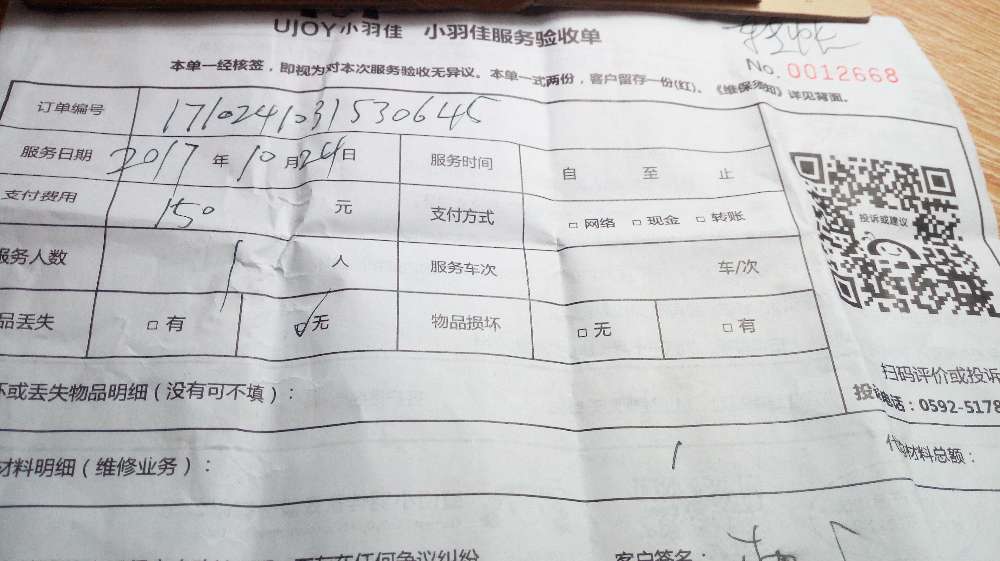 UJOY小羽佳 小羽佳服务验收单
No. 0012668
本单一经核签，即视为对本次服务验收无异议。本单一式两份，客户留存一份(红)。《维保须知》详见背面。
订单编号 171024103153064​5
服务日期 2017 年 10 月 24 日 服务时间 自 至 止
支付费用 150 元 支付方式 □ 网络 □ 现金 □ 转账
服务人数 1 人 服务车次 车/次
品丢失 □ 有 ☑ 无 物品损坏 □ 无 □ 有
投诉或建议
扫码评价或投诉
投诉电话：0592-5178
坏或丢失物品明细（没有可不填）：
材料明细（维修业务）：
材料总额：
在任何争议纠纷 客户签名：